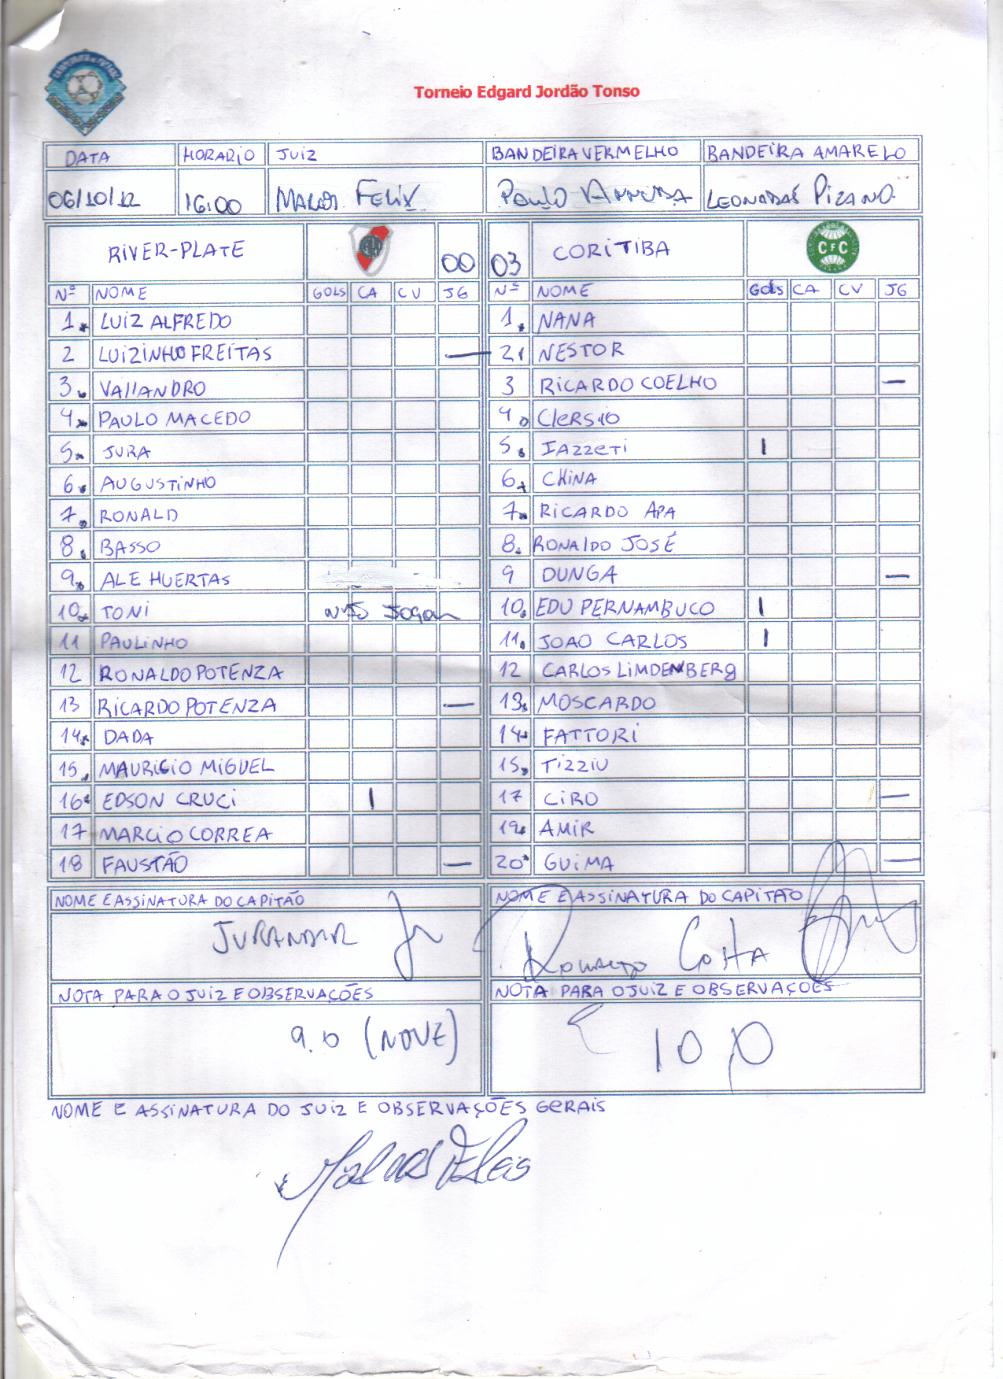 Torneio Edgard Jordão Tonso
DATA HORARIO JUIZ BANDEIRA VERMELHO BANDEIRA AMARELO
06/10/12 16:00 MARCOS FELIX PAULO ARRUDA LEONADAS PIZANO
RIVER-PLATE 00 03 CORITIBA CFC
Nº NOME GOLS CA CV JG Nº NOME GOLS CA CV JG
1 LUIZ ALFREDO 1 NANA
2 LUIZINHO FREITAS — 2 NESTOR
3 VALLANDRO 3 RICARDO COELHO —
4 PAULO MACEDO 4 CLERSIO
5 JURA 5 IAZZETI I
6 AUGUSTINHO 6 CHINA
7 RONALD 7 RICARDO APA
8 BASSO 8 RONALDO JOSÉ
9 ALE HUERTAS 9 DUNGA —
10 TONI NÃO JOGOU 10 EDU PERNAMBUCO I
11 PAULINHO 11 JOAO CARLOS I
12 RONALDO POTENZA 12 CARLOS LIMDENBERG
13 RICARDO POTENZA — 13 MOSCARDO
14 DADA 14 FATTORI
15 MAURICIO MIGUEL 15 TIZZIU
16 EDSON CRUCI I 17 CIRO —
17 MARCIO CORREA 19 AMIR
18 FAUSTÃO — 20 GUIMA —
NOME E ASSINATURA DO CAPITÃO NOME E ASSINATURA DO CAPITÃO
JURANDIR RONALDO COSTA
NOTA PARA O JUIZ E OBSERVAÇÕES NOTA PARA O JUIZ E OBSERVAÇÕES
9.0 (NOVE) 10,0
NOME E ASSINATURA DO JUIZ E OBSERVAÇÕES GERAIS